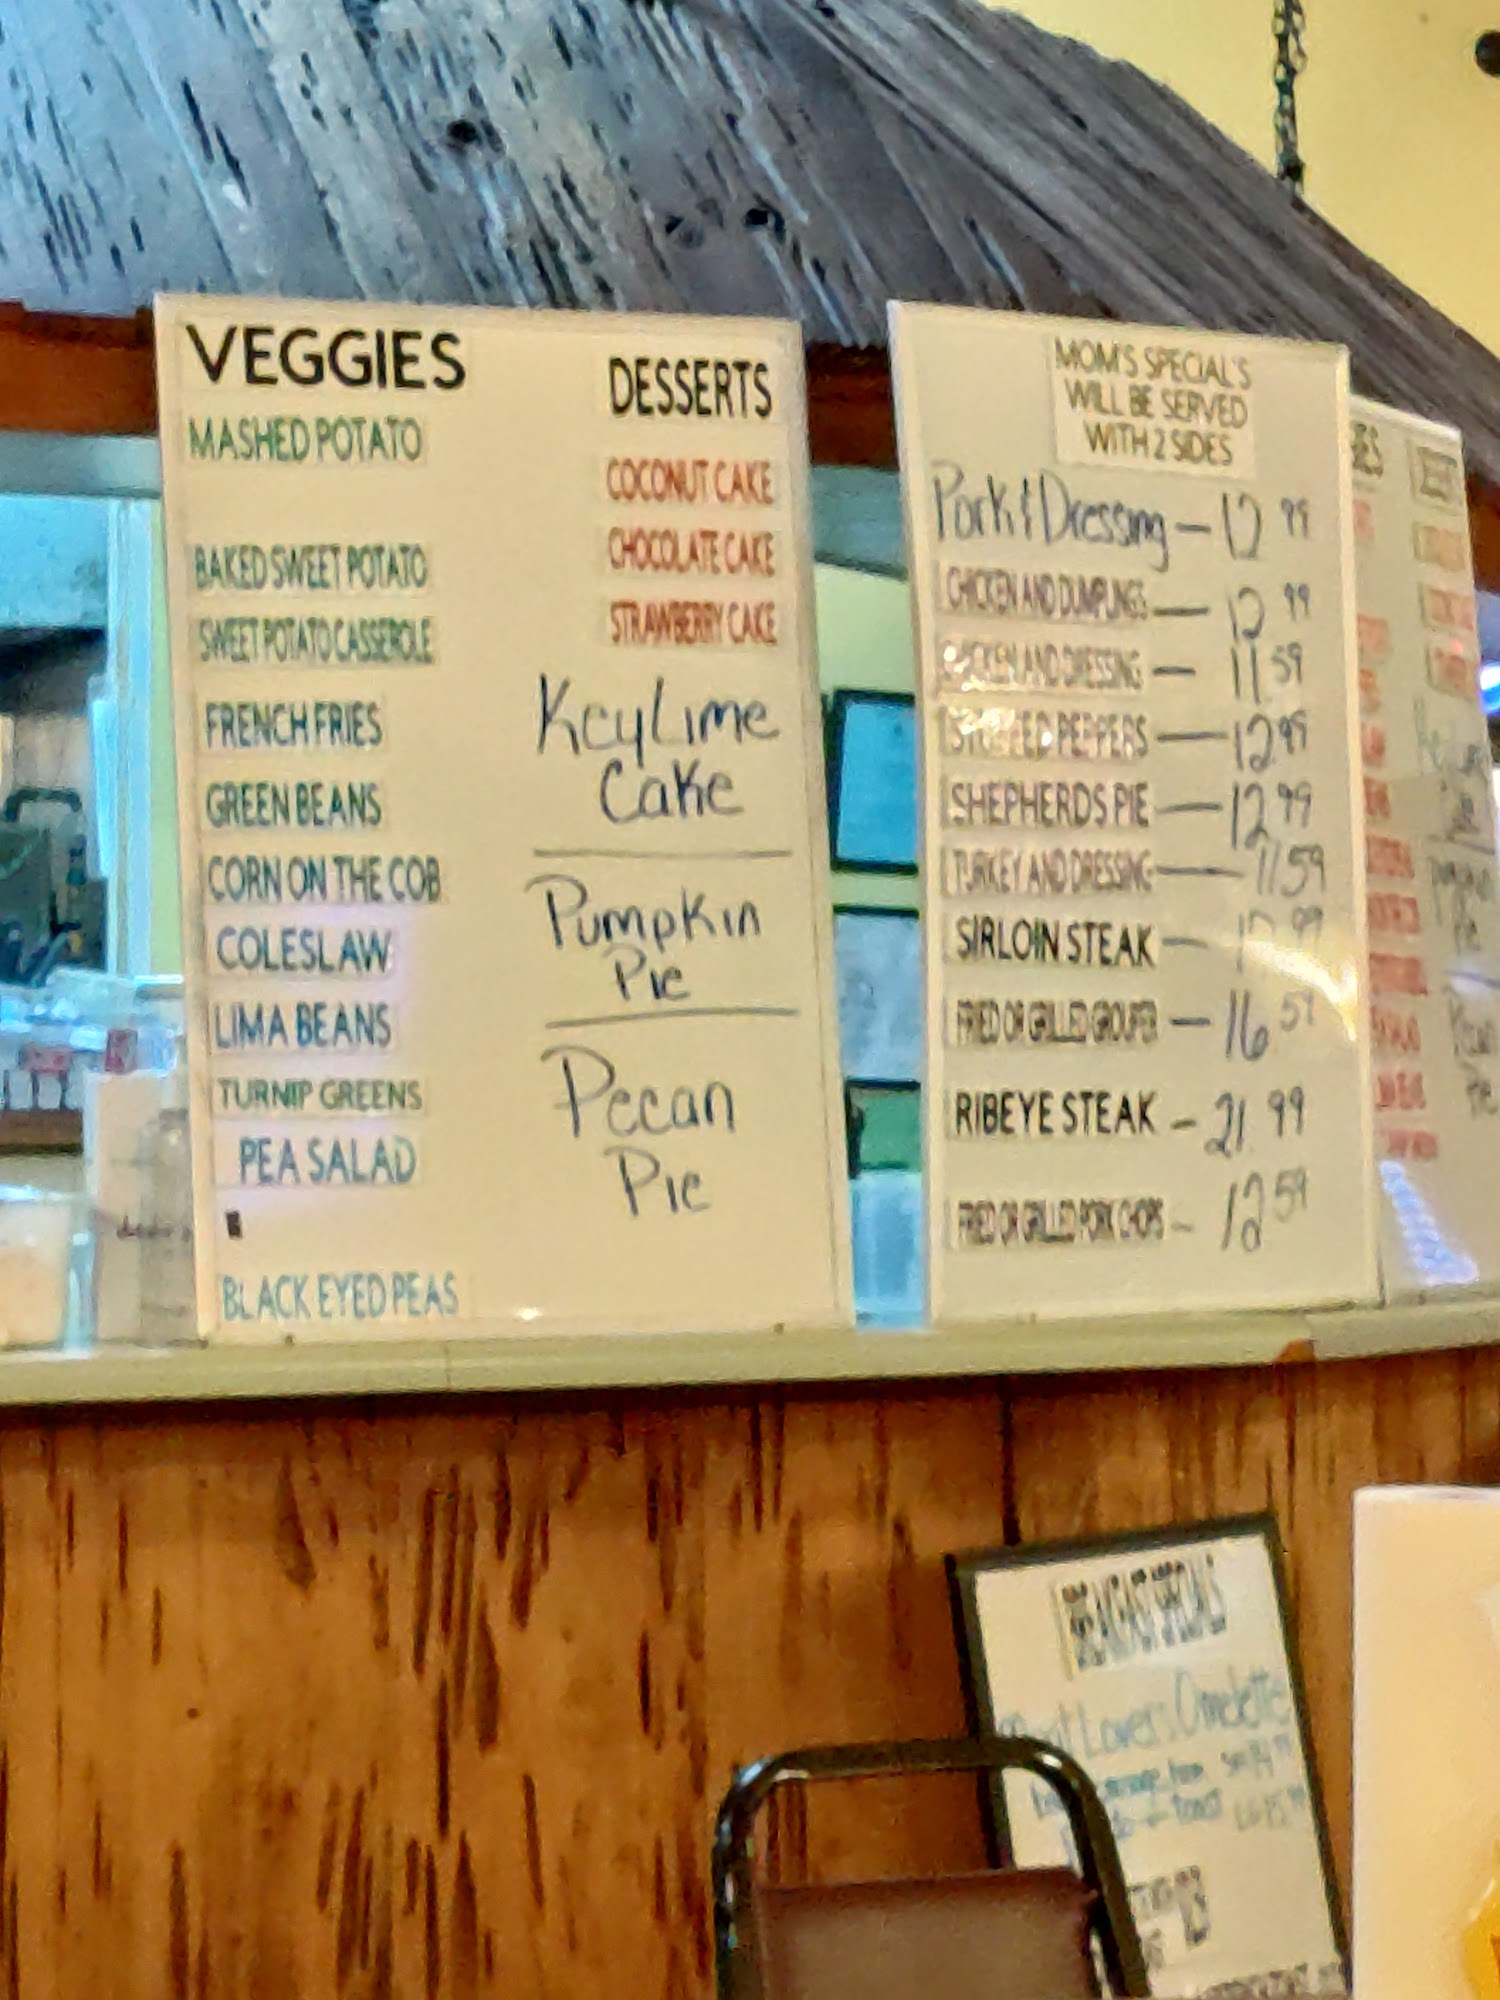 VEGGIES
MASHED POTATO
BAKED SWEET POTATO
SWEET POTATO CASSEROLE
FRENCH FRIES
GREEN BEANS
CORN ON THE COB
COLESLAW
LIMA BEANS
TURNIP GREENS
PEA SALAD
BLACK EYED PEAS
DESSERTS
COCONUT CAKE
CHOCOLATE CAKE
STRAWBERRY CAKE
Key Lime
Cake
Pumpkin
Pie
Pecan
Pie
MOM'S SPECIAL'S
WILL BE SERVED
WITH 2 SIDES
Pork & Dressing — 12 99
CHICKEN AND DUMPLINGS — 12 99
CHICKEN AND DRESSING — 11.59
STUFFED PEPPERS — 12.99
SHEPHERDS PIE — 12.99
TURKEY AND DRESSING — 11.59
SIRLOIN STEAK —
FRIED OR GRILLED GROUPER — 16.59
RIBEYE STEAK — 21.99
FRIED OR GRILLED PORK CHOPS — 12.59
BREAKFAST SPECIALS
Lovers Omelette
Toast